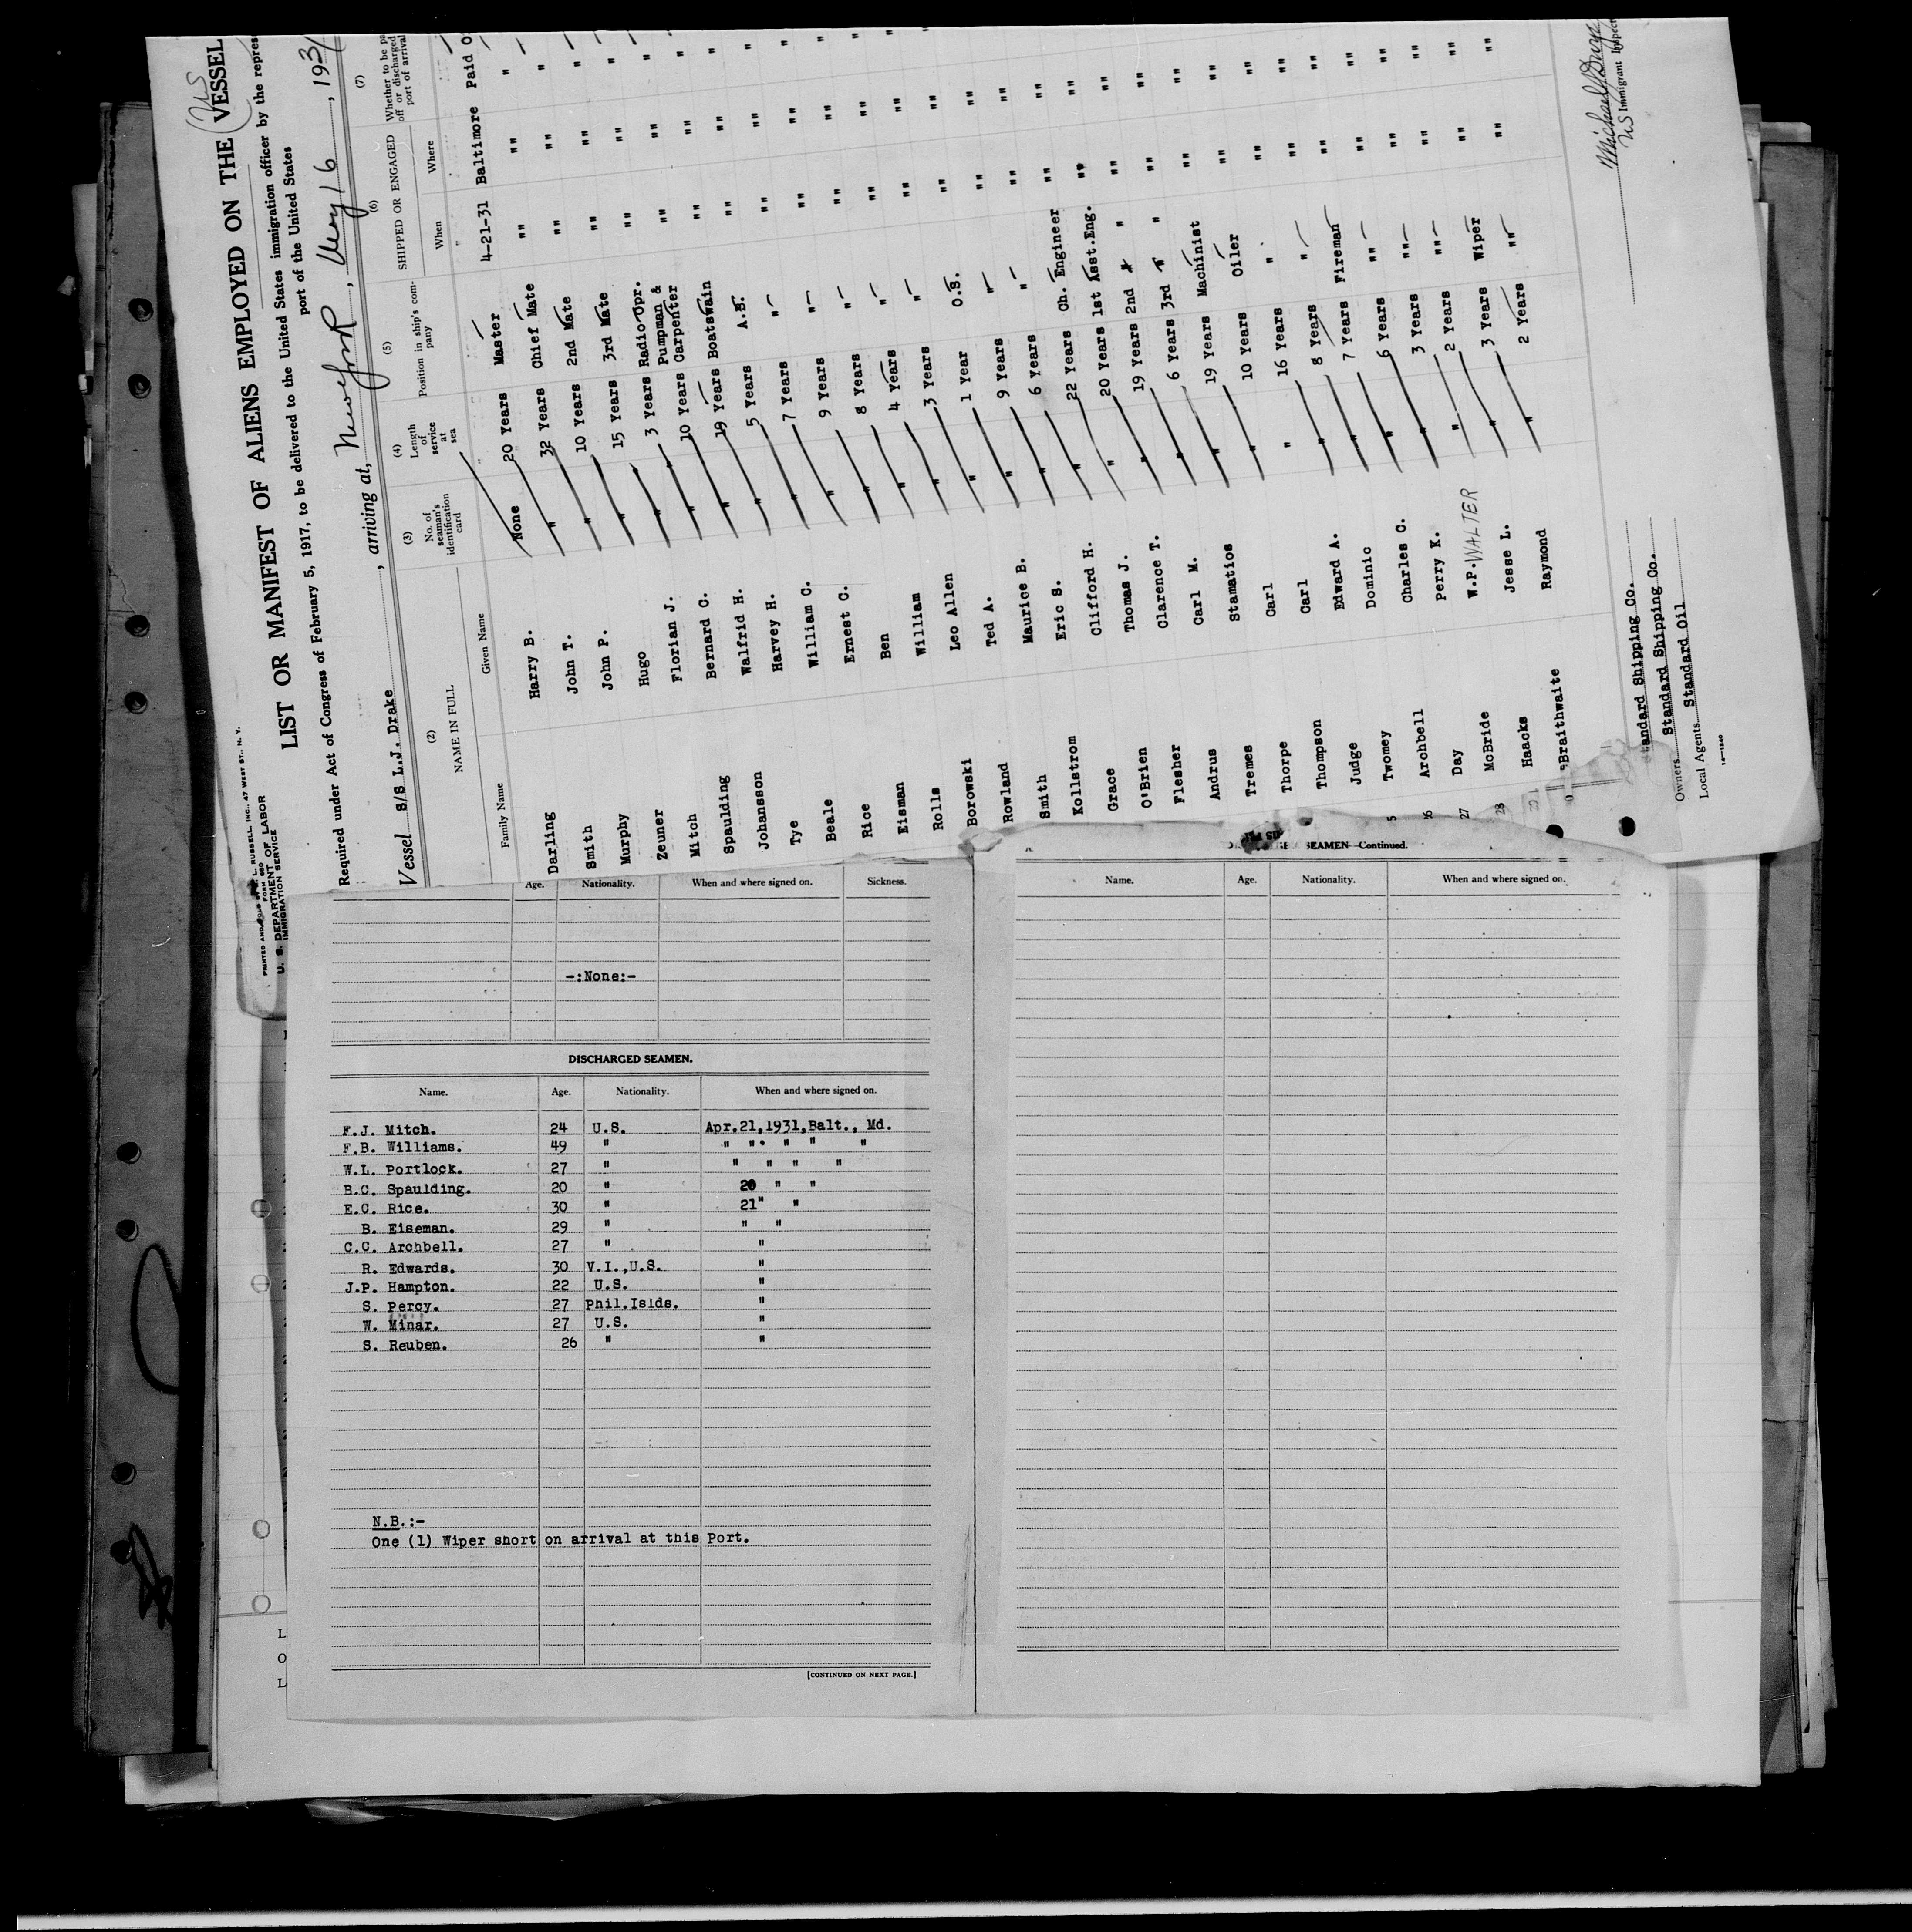 PRINTED AND SOLD BY L. RUSSELL, INC., 47 WEST ST., N. Y.
FORM 680
U. S. DEPARTMENT OF LABOR
IMMIGRATION SERVICE
LIST OR MANIFEST OF ALIENS EMPLOYED ON THE VESSEL
US
Required under Act of Congress of February 5, 1917, to be delivered to the United States immigration officer by the repres
port of the United States
Vessel S/S L.J. Drake, arriving at, New York, May 16, 1931
(2) (3) (4) (5) (6) (7)
NAME IN FULL No. of seaman's identification card Length of service at sea Position in ship's company SHIPPED OR ENGAGED Whether to be pa off or discharged port of arrival
Family Name Given Name When Where
Darling Harry B. None 20 Years Master 4-21-31 Baltimore Paid O
Smith John T. " 32 Years Chief Mate "" "" "
Murphy John P. " 10 Years 2nd Mate "" "" "
Zeuner Hugo " 15 Years 3rd Mate "" "" "
Mitch Florian J. " 3 Years Radio Opr. "" "" "
Spaulding Bernard C. " 10 Years Pumpman & Carpenter "" "" "
Johansson Walfrid H. " 19 Years Boatswain "" "" "
Tye Harvey H. " 5 Years A.B. "" "" "
Beale William C. " 7 Years " "" "" "
Rice Ernest C. " 9 Years " "" "" "
Eisman Ben " 8 Years " "" "" "
Rolls William " 4 Years " "" "" "
Borowski Leo Allen " 3 Years " "" "" "
Rowland Ted A. " 1 Year O.S. "" "" ""
Smith Maurice B. " 9 Years " "" "" ""
Kollstrom Eric S. " 6 Years " "" "" ""
Grace Clifford H. " 22 Years Ch. Engineer "" "" ""
O'Brien Thomas J. " 20 Years 1st Asst.Eng. "" "" ""
Flesher Clarence T. " 19 Years 2nd " " "" "" ""
Andrus Carl M. " 6 Years 3rd " " "" "" ""
Tremes Stamatios " 19 Years Machinist "" "" ""
Thorpe Carl " 10 Years Oiler "" "" ""
Thompson Carl " 16 Years " "" "" ""
Judge Edward A. " 8 Years " "" "" ""
Twomey Dominic " 7 Years Fireman "" "" ""
5 Archbell Charles C. " 6 Years "" "" "" ""
26 Day Perry K. " 3 Years "" "" "" ""
27 McBride W.P. WALTER " 2 Years "" "" "" ""
28 Haacks Jesse L. " 3 Years Wiper "" "" ""
29 Braithwaite Raymond " 2 Years "" "" "" ""
US Immigrant Inspec
tandard Shipping Co.
Owners Standard Shipping Co.
Local Agents Standard Oil
14-1240
Age. Nationality. When and where signed on. Sickness.
-:None:-
DISCHARGED SEAMEN.
Name. Age. Nationality. When and where signed on.
F.J. Mitch. 24 U.S. Apr.21,1931,Balt., Md.
F.B. Williams. 49 " " " " " "
W.L. Portlock. 27 " " " " "
B.C. Spaulding. 20 " 20 " "
E.C. Rice. 30 " 21" "
B. Eiseman. 29 " " "
C.C. Archbell. 27 " "
R. Edwards. 30 V.I.,U.S. "
J.P. Hampton. 22 U.S. "
S. Percy. 27 Phil.Islds. "
W. Minar. 27 U.S. "
S. Reuben. 26 " "
N.B.:-
One (1) Wiper short on arrival at this Port.
[CONTINUED ON NEXT PAGE.]
SEAMEN—Continued.
Name. Age. Nationality. When and where signed on.
L
O
L